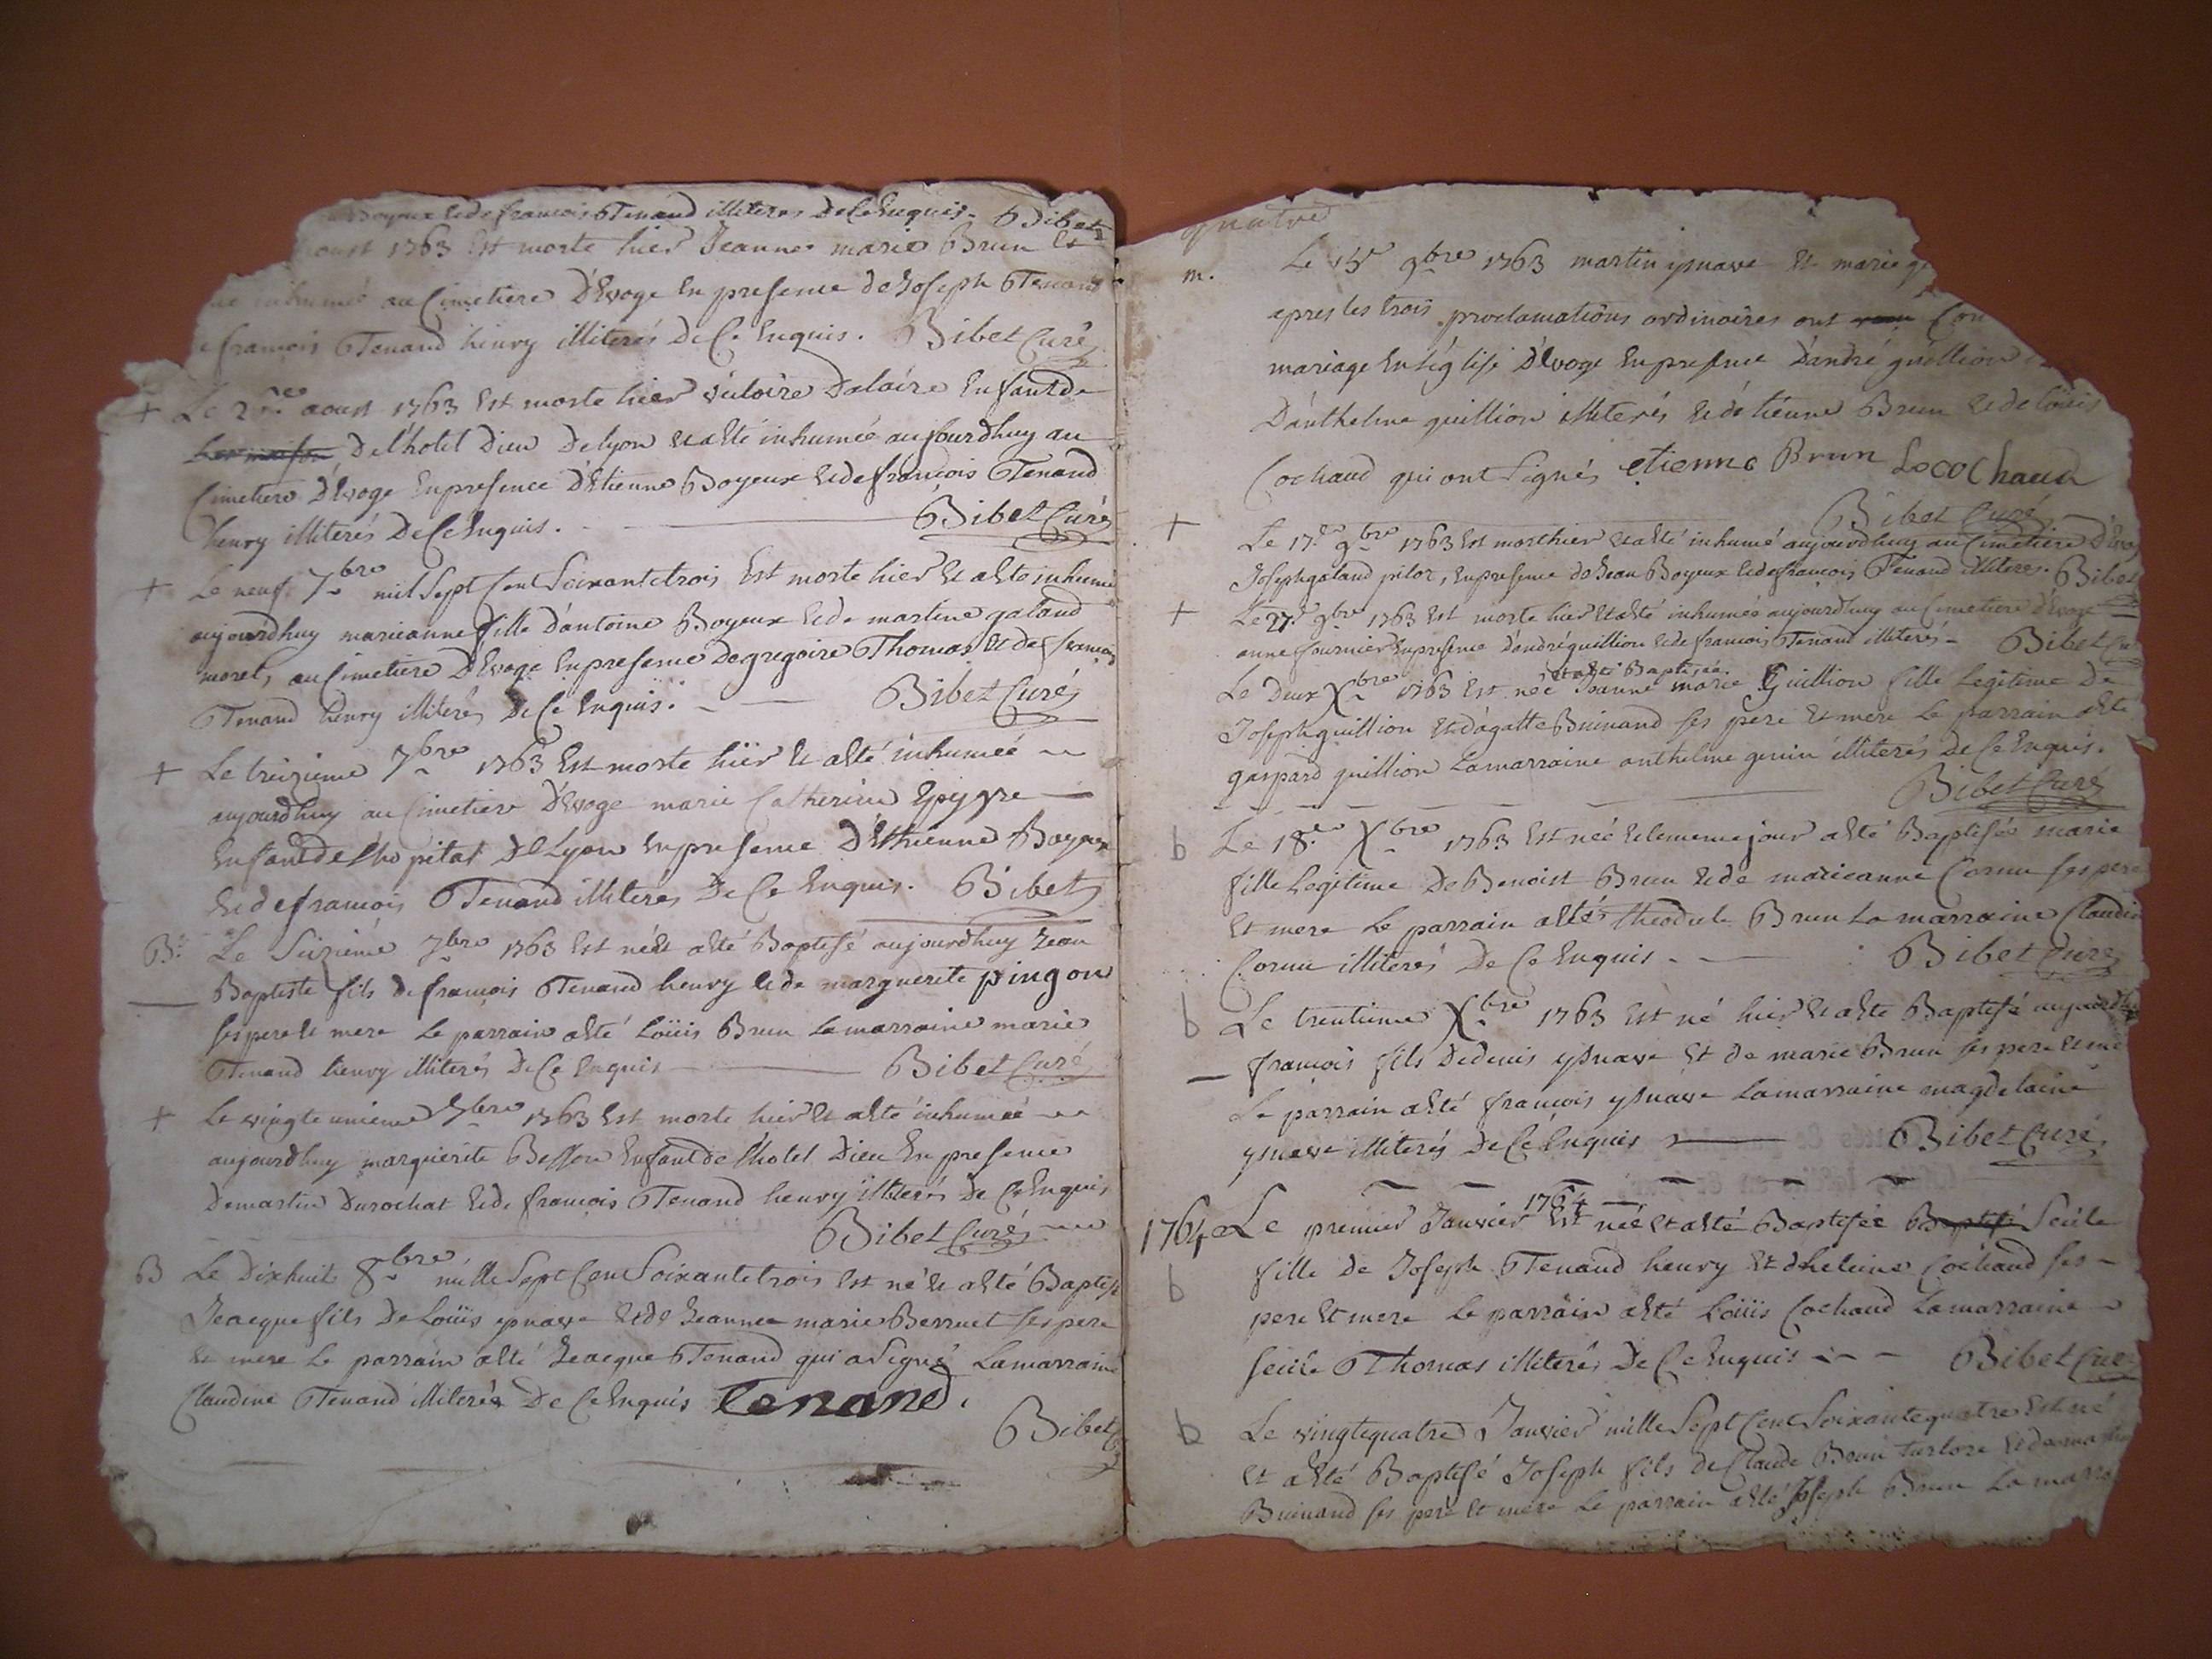 Boyeux & de francois Tenand illiteres De Ce Enquis. Bibet
oust 1763 Est morte hier Jeanne marie Brun Et
inhumée au Cimetiere D'Evoge En presence de Joseph Tenand
francois Tenand henry illiterés De Ce Enquis. Bibet Curé
+ Le aoust 1763 Est morte hier victoire Enfant de
De l'hotel Dieu De lyon & a Eté inhumée aujourdhuy au
Cimetiere D'Evoge En presence D'Etienne Boyeux & de francois Tenand
henry illiterés De Ce Enquis. Bibet Curé
+ Le neuf 7bre mil Sept Cent Soixante trois Est morte hier & a Eté inhumée
aujourdhuy marieanne fille D'antoine Boyeux & de martine galand
moret, au Cimetiere D'Evoge En presence De gregoire Thomas & de francois
Tenand henry illiterés De Ce Enquis. Bibet Curé
+ Le treizieme 7bre 1763 Est morte hier & a Eté inhumeé
aujourdhuy au Cimetiere D'Evoge marie Catherine
Enfant de l'hopital De Lyon En presence D'Ethienne Boyeux
& de francois Tenand illiteres De Ce Enquis. Bibet
B. Le Seizieme 7bre 1763 Est né & a Eté Baptisé aujourdhuy Jean
Baptiste fils de francois Tenand henry & de marguerite pingon
ses pere & mere Le parrain a Eté Loüis Brun La marraine marie
Tenand henry illiterés De Ce Enquis Bibet Curé
+ Le vingt unieme 7bre 1763 Est morte hier & a Eté inhumeé
aujourdhuy marguerite Besson Enfant de l'hotel Dieu En presence
De martin Durochat & de francois Tenand henry illiterés De Ce Enquis
Bibet Curé
B Le Dixhuit 8bre mille Sept Cent Soixante trois Est né & a Eté Baptisé
Jeacque fils De Loüis ynare & de Jeanne marie Berruet ses pere
& mere Le parrain a Eté Jeacque Tenand qui a Signé La marraine
Claudine Tenand illiterés De Ce Enquis Tenand.
Bibet
quatre
m. Le 15e 9bre 1763 martin ynare Et marie
apres les trois proclamations ordinaires ont Con
mariage En l'église D'Evoge En presence D'andré guillion
D'anthelme guillion illiterés & d'etienne Brun & de Loüis
Cochaud qui ont Signés etienne Brun Lo cochaud
Bibet Curé
+ Le 17e 9bre 1763 Est mort hier & a Eté inhumé aujourdhuy au Cimetiere D'Evo
Joseph galand pilor, En presence de Jean Boyeux & de francois Tenand illiteres. Bibet
+ Le 27e 9bre 1763 Est morte hier & a Eté inhumée aujourdhuy au Cimetiere D'Evoge
anne fournier En presence D'andré guillion & de francois Tenand illiterés Bibet Cu
& a Eté Baptisée
Le Deux Xbre 1763 Est neé Jeanne marie Guillion fille Legitime De
Joseph guillion Et D'agatte Buinand ses pere Et mere Le parrain a Eté
gaspard guillion La marraine anthelme genin illiterés De Ce Enquis.
Bibet Curé
b Le 18e Xbre 1763 Est neé & le meme jour a Eté Baptisée marie
fille Legitime De Benoist Brun & de marieanne Cornu ses pere
Et mere Le parrain a Eté theodule Brun La marraine Claudine
Cornu illiterés De Ce Enquis Bibet Curé
b Le trentieme Xbre 1763 Est né hier & a Eté Baptisé aujourdhuy
francois fils De denis ynare Et de marie Brun ses pere & me
Le parrain a Eté francois ynare La marraine magdelaine
ynare illiterés De Ce Enquis Bibet Curé
1764
1764 Le premier Janvier Est neé Et a Eté Baptisée Baptisé Secile
b fille De Joseph Tenand henry Et d'heleine Cochaud ses
pere Et mere Le parrain a Eté Loüis Cochaud La marraine
secile Thomas illiterés De Ce Enquis Bibet Cure
b Le vingtquatre Janvier mille Sept Cent Soixante quatre Est né
Et a Eté Baptisé Joseph fils De Claude Brun & de
Buinand ses pere Et mere Le parrain a Eté Joseph Brun La marra